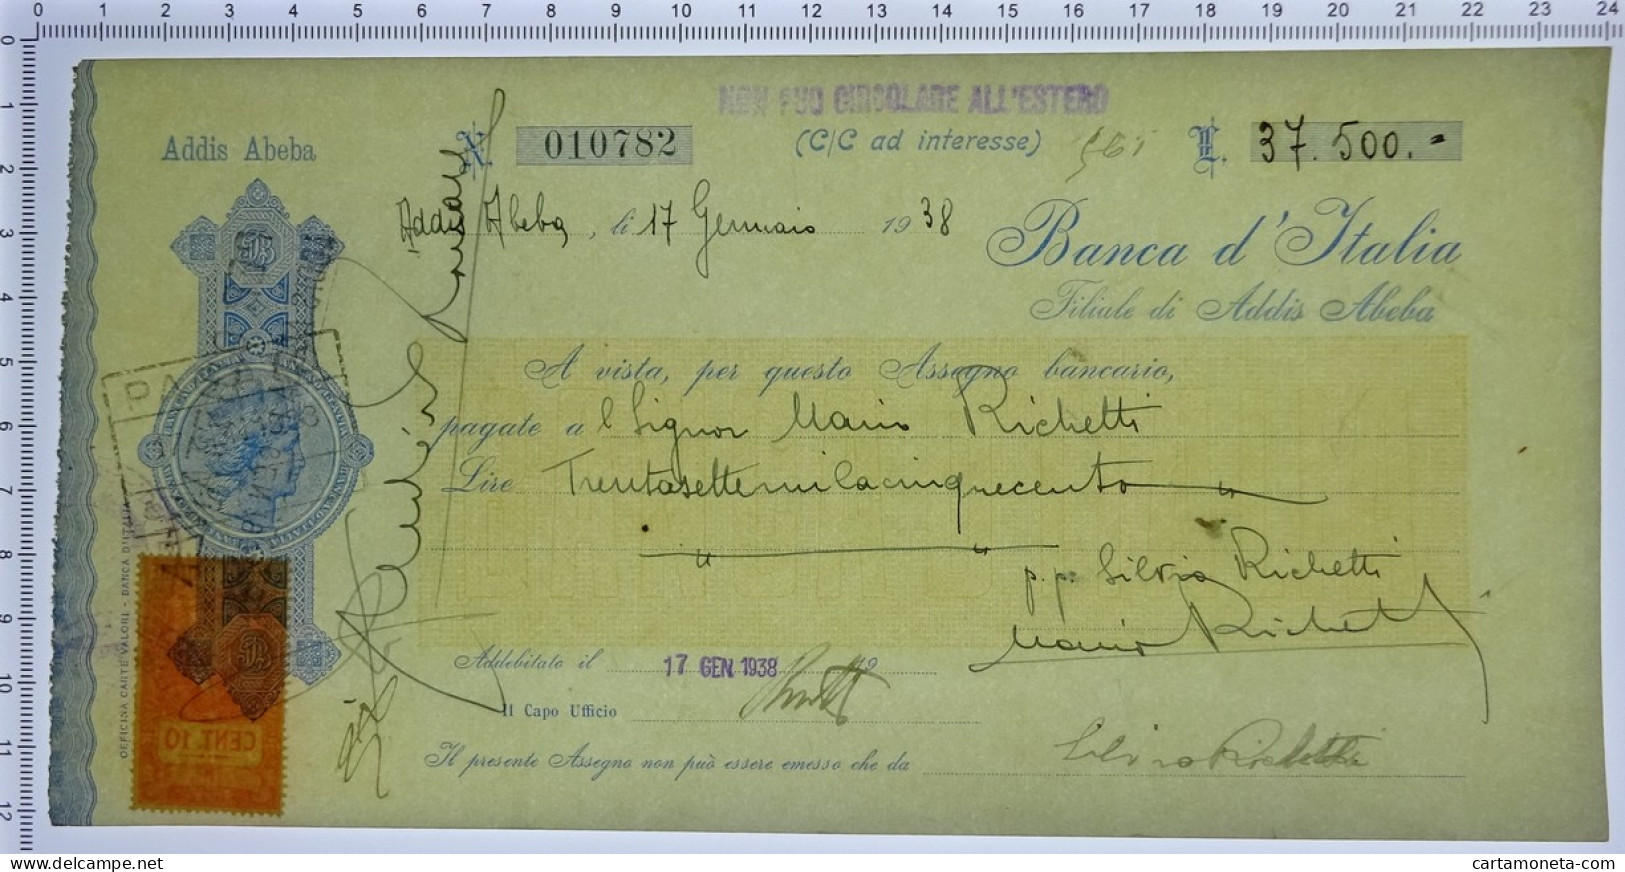 0 1 2 3 4 5 6 7 8 9 10 11 12 13 14 15 16 17 18 19 20 21 22 23 24
0 1 2 3 4 5 6 7 8 9 10 11 12
NON PUO CIRCOLARE ALL'ESTERO
Addis Abeba
N. 010782
(C/C ad interesse)
L. 37.500.=
Addis Abeba, li 17 Gennaio 1938
Banca d'Italia
Filiale di Addis Abeba
A vista, per questo Assegno bancario,
pagate a l Signor Mario Richetti
Lire Trentasettemilacinquecento
p.p. Silvia Richetti
Mario Richetti
Addebitato il 17 GEN. 1938 19
Il Capo Ufficio
Il presente Assegno non può essere emesso che da Silvia Richetti
OFFICINA CARTE VALORI - BANCA D'ITALIA
CENT. 10
www.delcampe.net
cartamoneta-com